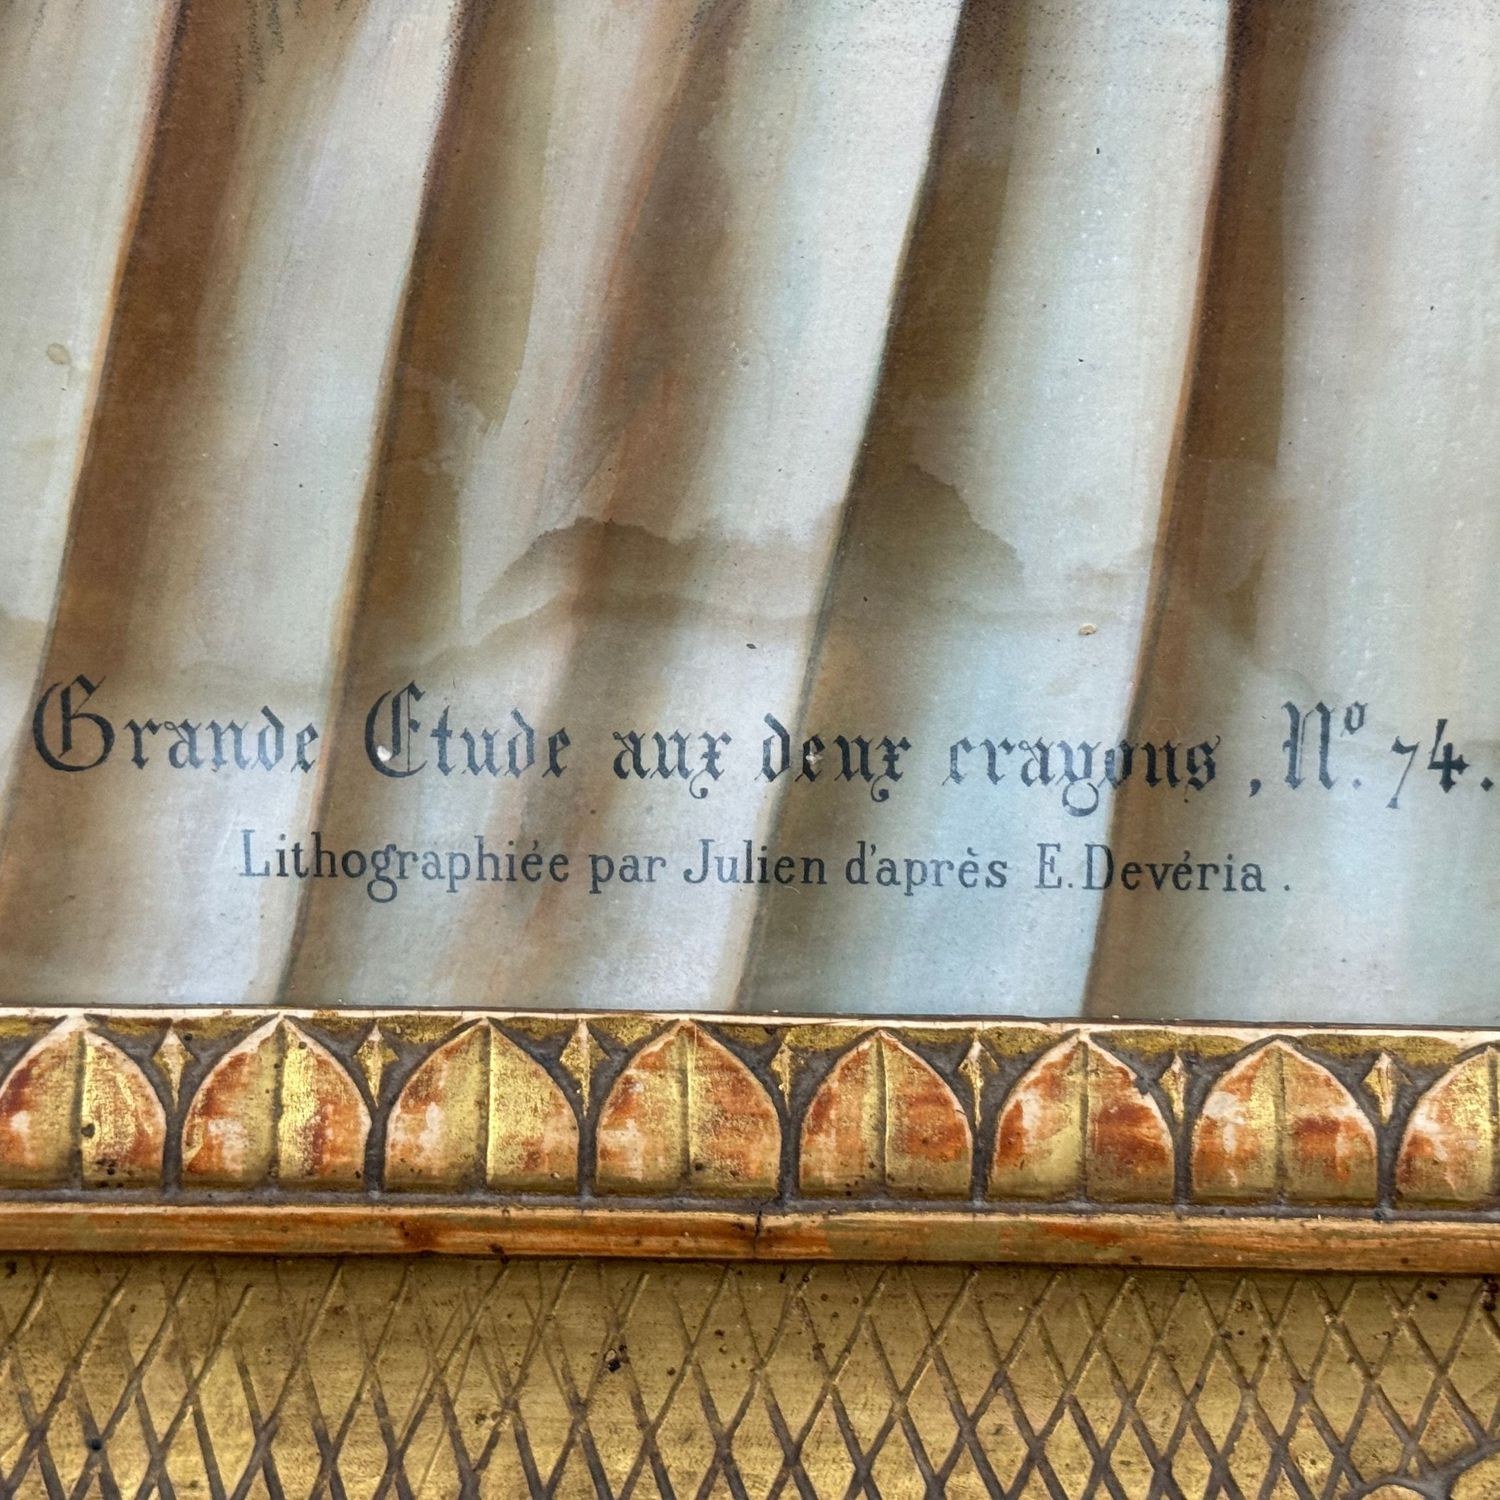 Grande Etude aux deux crayons, Nº. 74.
Lithographiée par Julien d'après E. Devéria.